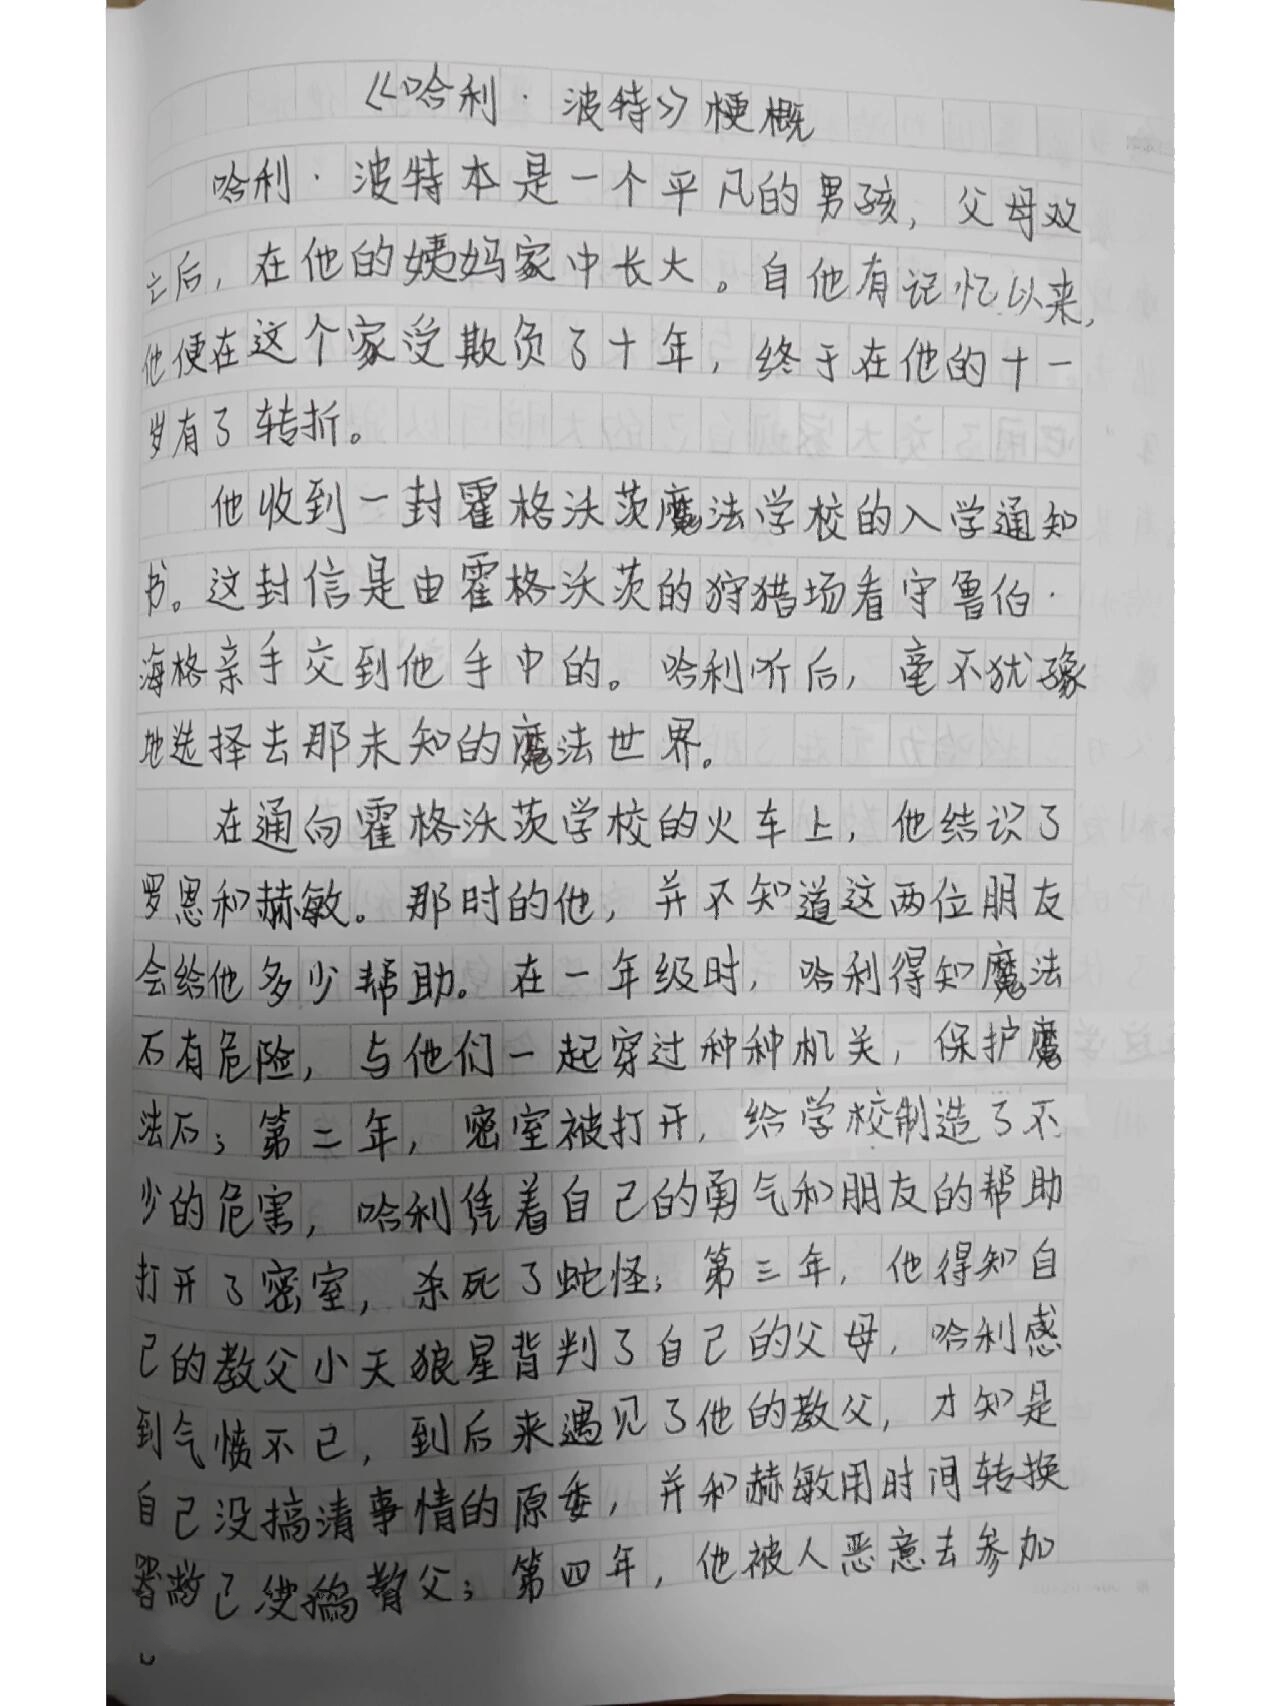 《哈利·波特》梗概
哈利·波特本是一个平凡的男孩，父母双
亡后，在他的姨妈家中长大。自他有记忆以来，
他便在这个家受欺负了十年，终于在他的十一
岁有了转折。
他收到一封霍格沃茨魔法学校的入学通知
书。这封信是由霍格沃茨的狩猎场看守鲁伯·
海格亲手交到他手中的。哈利听后，毫不犹豫
地选择去那未知的魔法世界。
在通向霍格沃茨学校的火车上，他结识了
罗恩和赫敏。那时的他，并不知道这两位朋友
会给他多少帮助。在一年级时，哈利得知魔法
石有危险，与他们一起穿过种种机关，保护魔
法石；第二年，密室被打开，给学校制造了不
少的危害，哈利凭着自己的勇气和朋友的帮助
打开了密室，杀死了蛇怪；第三年，他得知自
己的教父小天狼星背判了自己的父母，哈利感
到气愤不已，到后来遇见了他的教父，才知是
自己没搞清事情的原委，并和赫敏用时间转换
教父；第四年，他被人恶意去参加